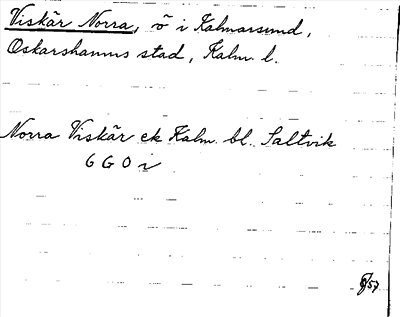 Viskär Norra, ö i Kalmarsund,
Oskarshamns stad, Kalm. l.
Norra Viskär ek Kalm. bl. Saltvik
6 G 0 i
/57